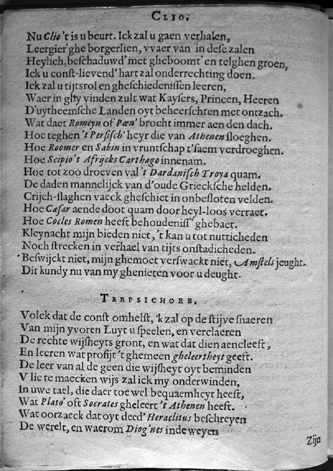 CLIO.
Nu Clio 't is u beurt. Ick zal u gaen verhalen,
Leergier'ghe borgerlien, vvaer van in deze zalen
Heylich, beschaduwd' met gheboomt' en telghen groen,
Ick u const-lievend' hart zal onderrechting doen.
Ick zal u tijtsrol en gheschiedenissen leeren,
Waer in ghy vinden zult wat Kaysers, Princen, Heeren
D'uytheemsche Landen oyt beheerschten met ontzach.
Wat daet Romeyn of Pæn' brocht immer aen den dach.
Hoe teghen 't Persisch' heyr die van Athenen sloeghen.
Hoe Roomer en Sabin in vruntschap t'saem verdroeghen.
Hoe Scipio 't Afrijcks Carthago innenam.
Hoe tot zoo droeven val 't Dardanisch Troya quam.
De daden mannelijck van d'oude Griecksche helden.
Crijch-slaghen vaeck gheschiet in onbesloten velden.
Hoe Cæsar aende doot quam door heyl-loos verraet.
Hoe Cocles Romen heeft behoudeniss' ghebaet.
Kleynacht mijn bieden niet, 't kan u tot nutticheden
Noch strecken in verhael van tijts onstadicheden.
Beswijckt niet, mijn ghemoet verswackt niet, Amstels jeught.
Dit kundy nu van my ghenieten voor u deught.
TERPSICHORE.
Volck dat de const omhelst, 'k zal op de stijve snaeren
Van mijn yvoren Luyt u speelen, en verclaeren
De rechte wijsheyts gront, en wat dat dien aencleeft,
En leeren wat profijt 't ghemeen gheleertheyt geeft.
De leer van al de geen die wijsheyt oyt beminden
V lie te maecken wijs zal ick my onderwinden,
In uwe tael, die daer toe wel bequaemheyt heeft,
Wat Plato' oft Socrates gheleert 't Athenen heeft.
Wat oorzaeck dat oyt deed' Heraclitus beschreyen
De werelt, en waerom Diog'nes inde weyen
Zijn